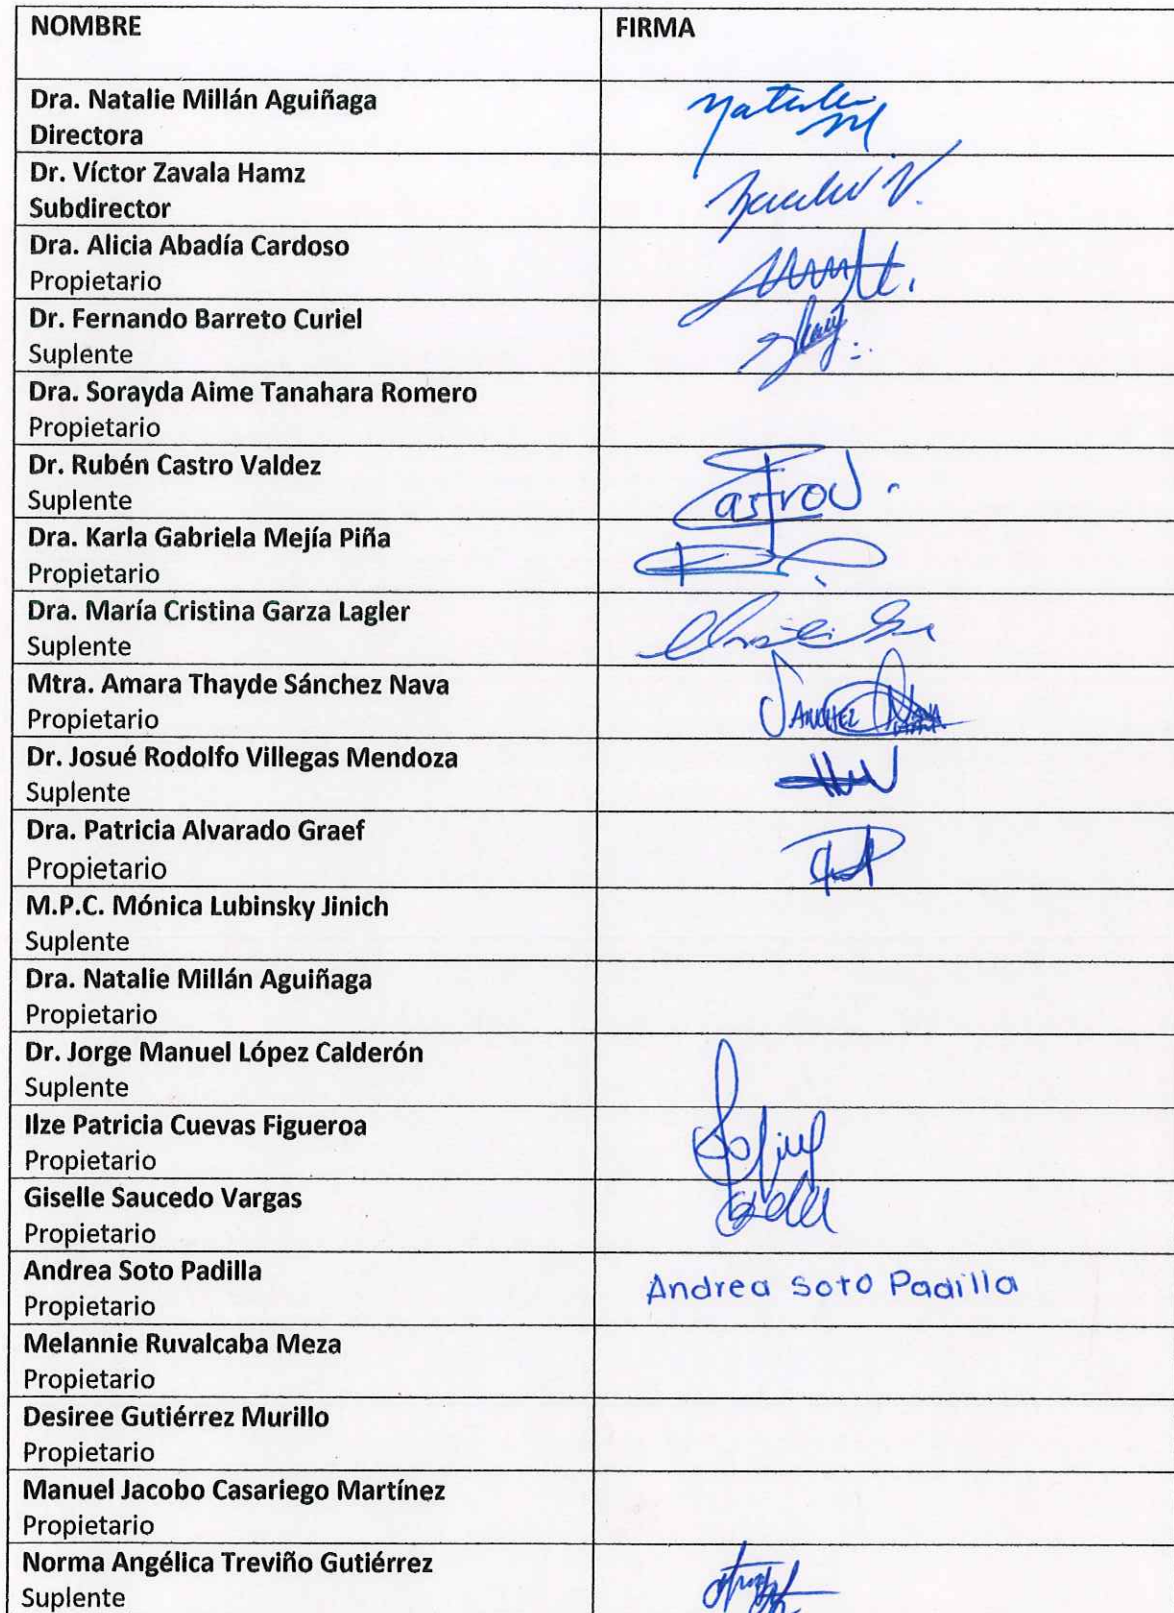 NOMBRE FIRMA
Dra. Natalie Millán Aguiñaga
Directora
Natalie M
Dr. Víctor Zavala Hamz
Subdirector
Zavala V.
Dra. Alicia Abadía Cardoso
Propietario
Dr. Fernando Barreto Curiel
Suplente
Dra. Sorayda Aime Tanahara Romero
Propietario
Dr. Rubén Castro Valdez
Suplente
Castro V.
Dra. Karla Gabriela Mejía Piña
Propietario
Dra. María Cristina Garza Lagler
Suplente
Mtra. Amara Thayde Sánchez Nava
Propietario
SANCHEZ NAVA
Dr. Josué Rodolfo Villegas Mendoza
Suplente
Dra. Patricia Alvarado Graef
Propietario
M.P.C. Mónica Lubinsky Jinich
Suplente
Dra. Natalie Millán Aguiñaga
Propietario
Dr. Jorge Manuel López Calderón
Suplente
Ilze Patricia Cuevas Figueroa
Propietario
Giselle Saucedo Vargas
Propietario
Andrea Soto Padilla
Propietario
Andrea Soto Padilla
Melannie Ruvalcaba Meza
Propietario
Desiree Gutiérrez Murillo
Propietario
Manuel Jacobo Casariego Martínez
Propietario
Norma Angélica Treviño Gutiérrez
Suplente